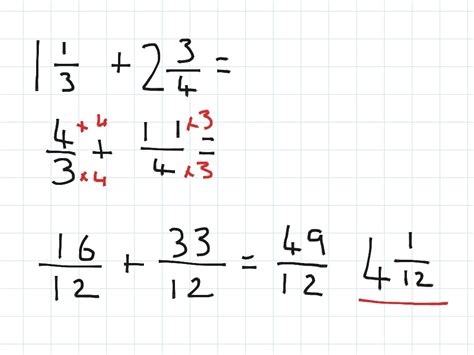 1 1/3 + 2 3/4 =
4/3 ×4/×4 + 11/4 ×3/×3 =
16/12 + 33/12 = 49/12 4 1/12